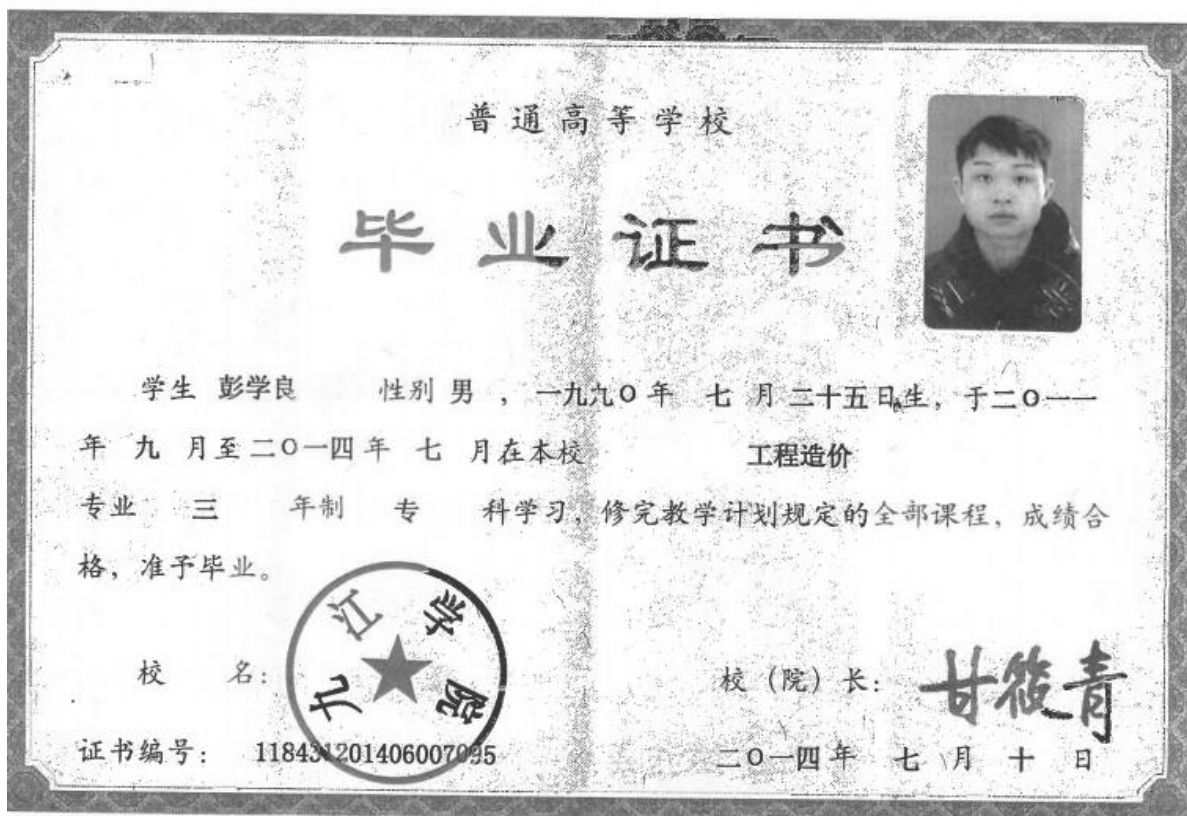 普通高等学校
毕业证书
学生 彭学良 性别 男 ，一九九〇年 七 月二十五日生，于二〇一一
年 九 月至二〇一四年 七 月在本校 工程造价
专业 三 年制 专 科学习，修完教学计划规定的全部课程，成绩合
格，准予毕业。
九江学院
校 名： 校（院）长：甘筱青
证书编号： 118431201406007095 二〇一四年 七 月 十 日